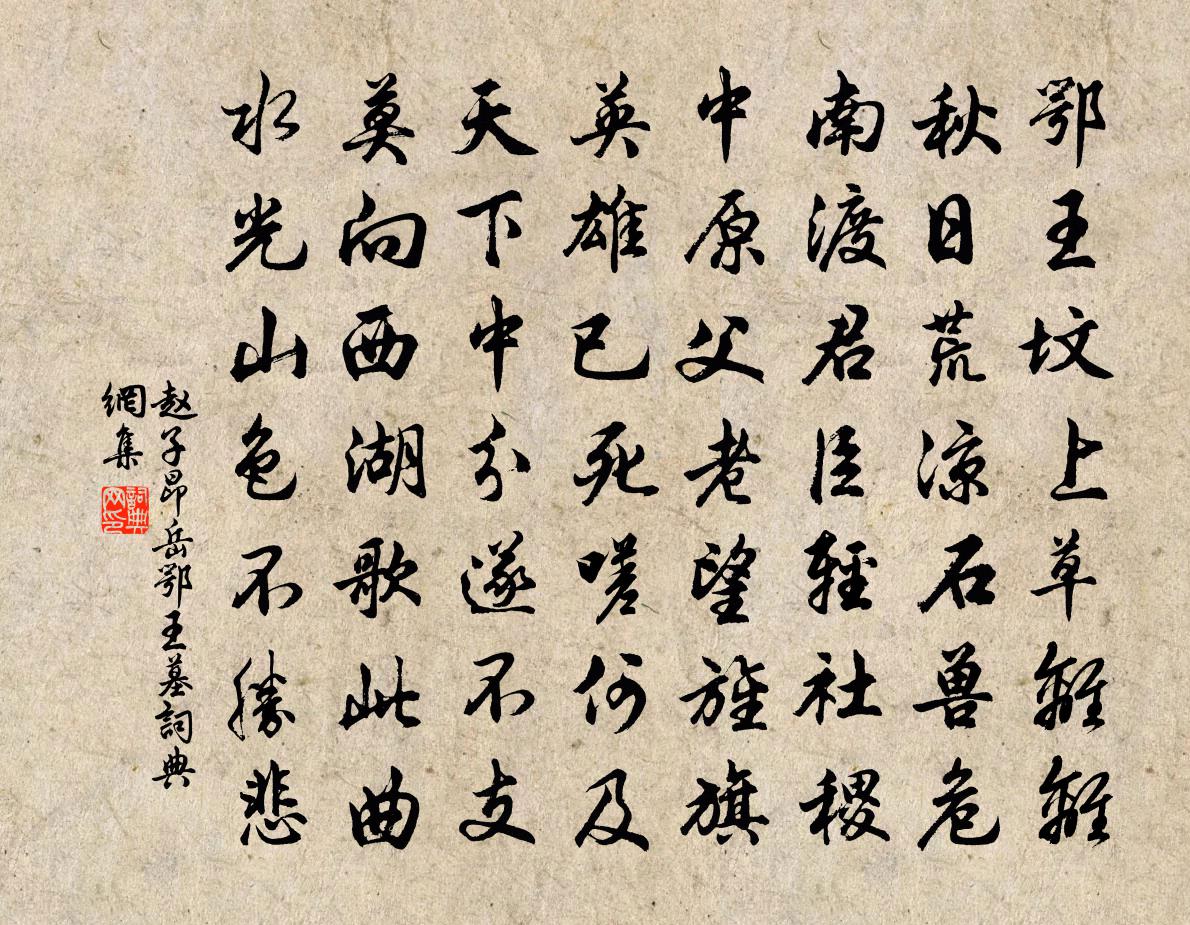 鄂王坟上草離離
秋日荒涼石兽危
南渡君臣輕社稷
中原父老望旌旗
英雄已死嗟何及
天下中分遂不支
莫向西湖歌此曲
水光山色不勝悲
赵子昂岳鄂王墓詞典
網集
詞典网印